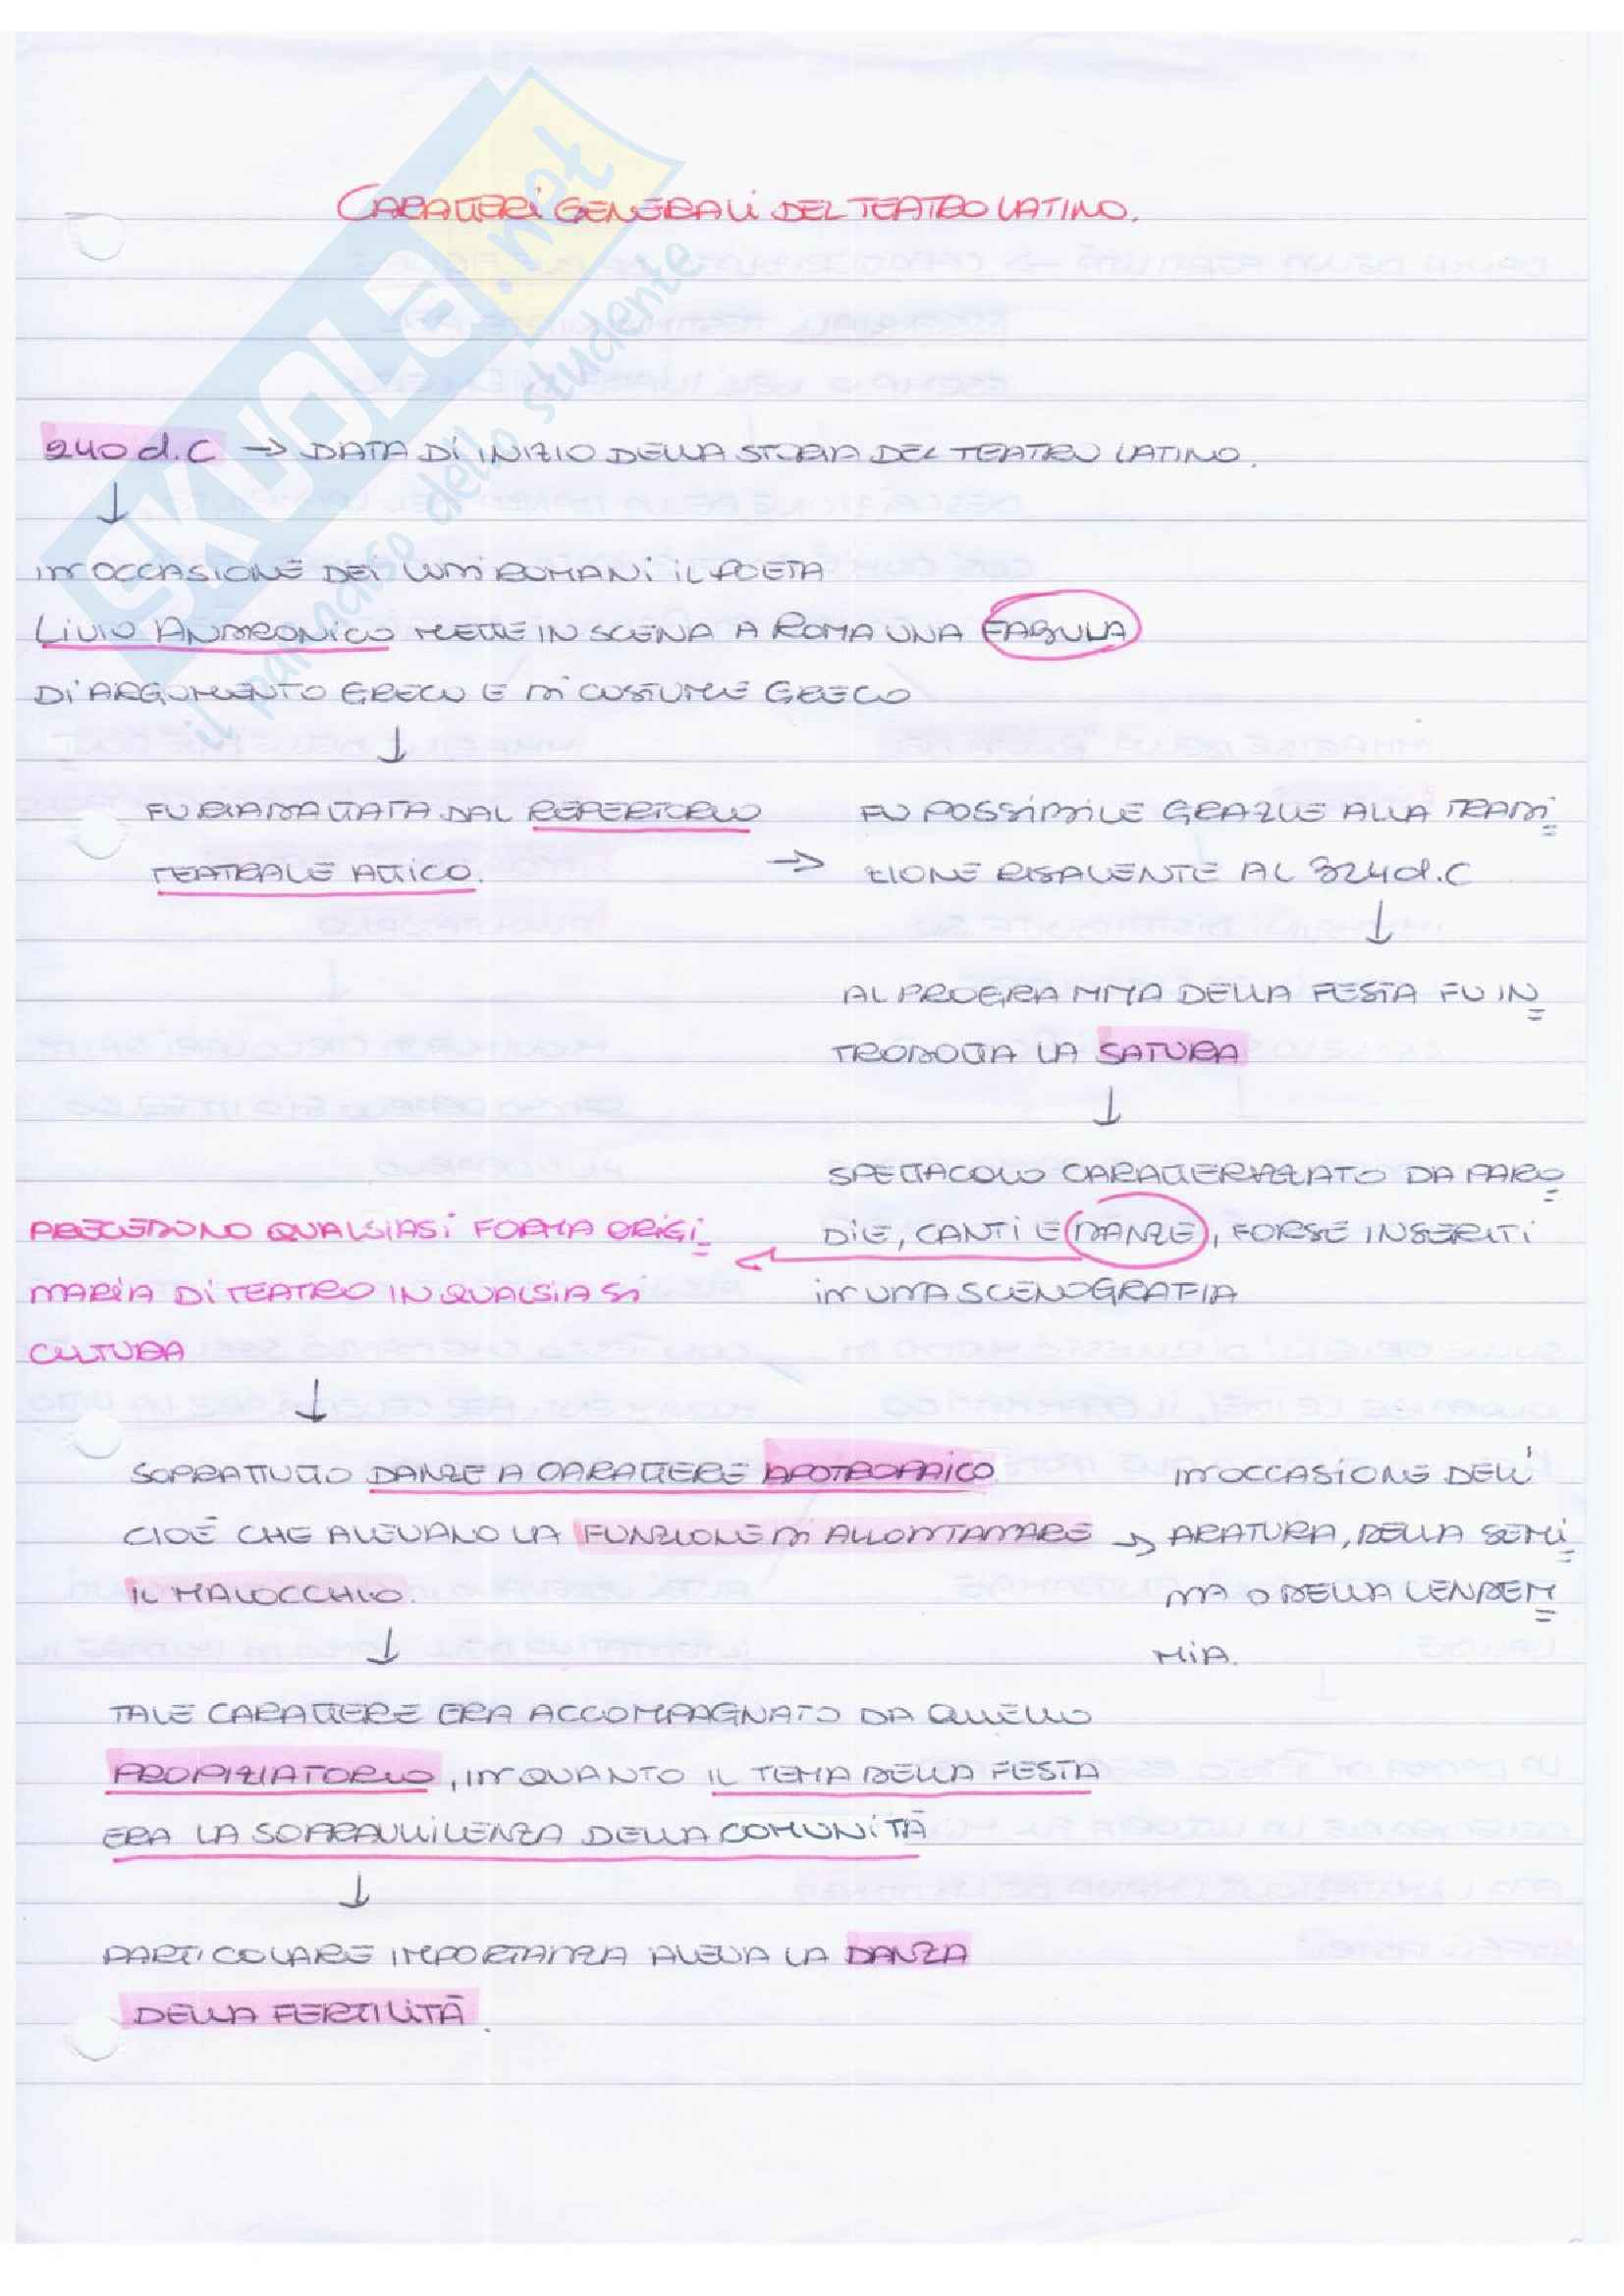 CARATTERI GENERALI DEL TEATRO LATINO.
240 d.C → DATA DI INIZIO DELLA STORIA DEL TEATRO LATINO.
↓
IN OCCASIONE DEI LUDI ROMANI IL POETA
LIVIO ANDRONICO METTE IN SCENA A ROMA UNA FABULA
DI ARGOMENTO GRECO E DI COSTUME GRECO
↓
FU RIADATTATA DAL REPERTORIO
TEATRALE ATTICO.
→ FU POSSIBILE GRAZIE ALLA TRADI=
ZIONE RISALENTE AL 324 d.C
↓
AL PROGRAMMA DELLA FESTA FU IN=
TRODOTTA LA SATURA
↓
SPETTACOLO CARATTERIZZATO DA PARO=
DIE, CANTI E DANZE, FORSE INSERITI
IN UNA SCENOGRAFIA
PRECEDONO QUALSIASI FORMA ORIGI=
NARIA DI TEATRO IN QUALSIASI
CULTURA
↓
SOPRATTUTTO DANZE A CARATTERE APOTROPAICO
CIOÈ CHE AVEVANO LA FUNZIONE DI ALLONTANARE
IL MALOCCHIO.
→ IN OCCASIONE DELL'
ARATURA, DELLA SEMI=
NA O DELLA VENDEM=
MIA.
↓
TALE CARATTERE ERA ACCOMPAGNATO DA QUELLO
PROPIZIATORIO, IN QUANTO IL TEMA DELLA FESTA
ERA LA SOPRAVVIVENZA DELLA COMUNITÀ
↓
PARTICOLARE IMPORTANZA AVEVA LA DANZA
DELLA FERTILITÀ.
SKUOLA.net
il paradiso dello studente